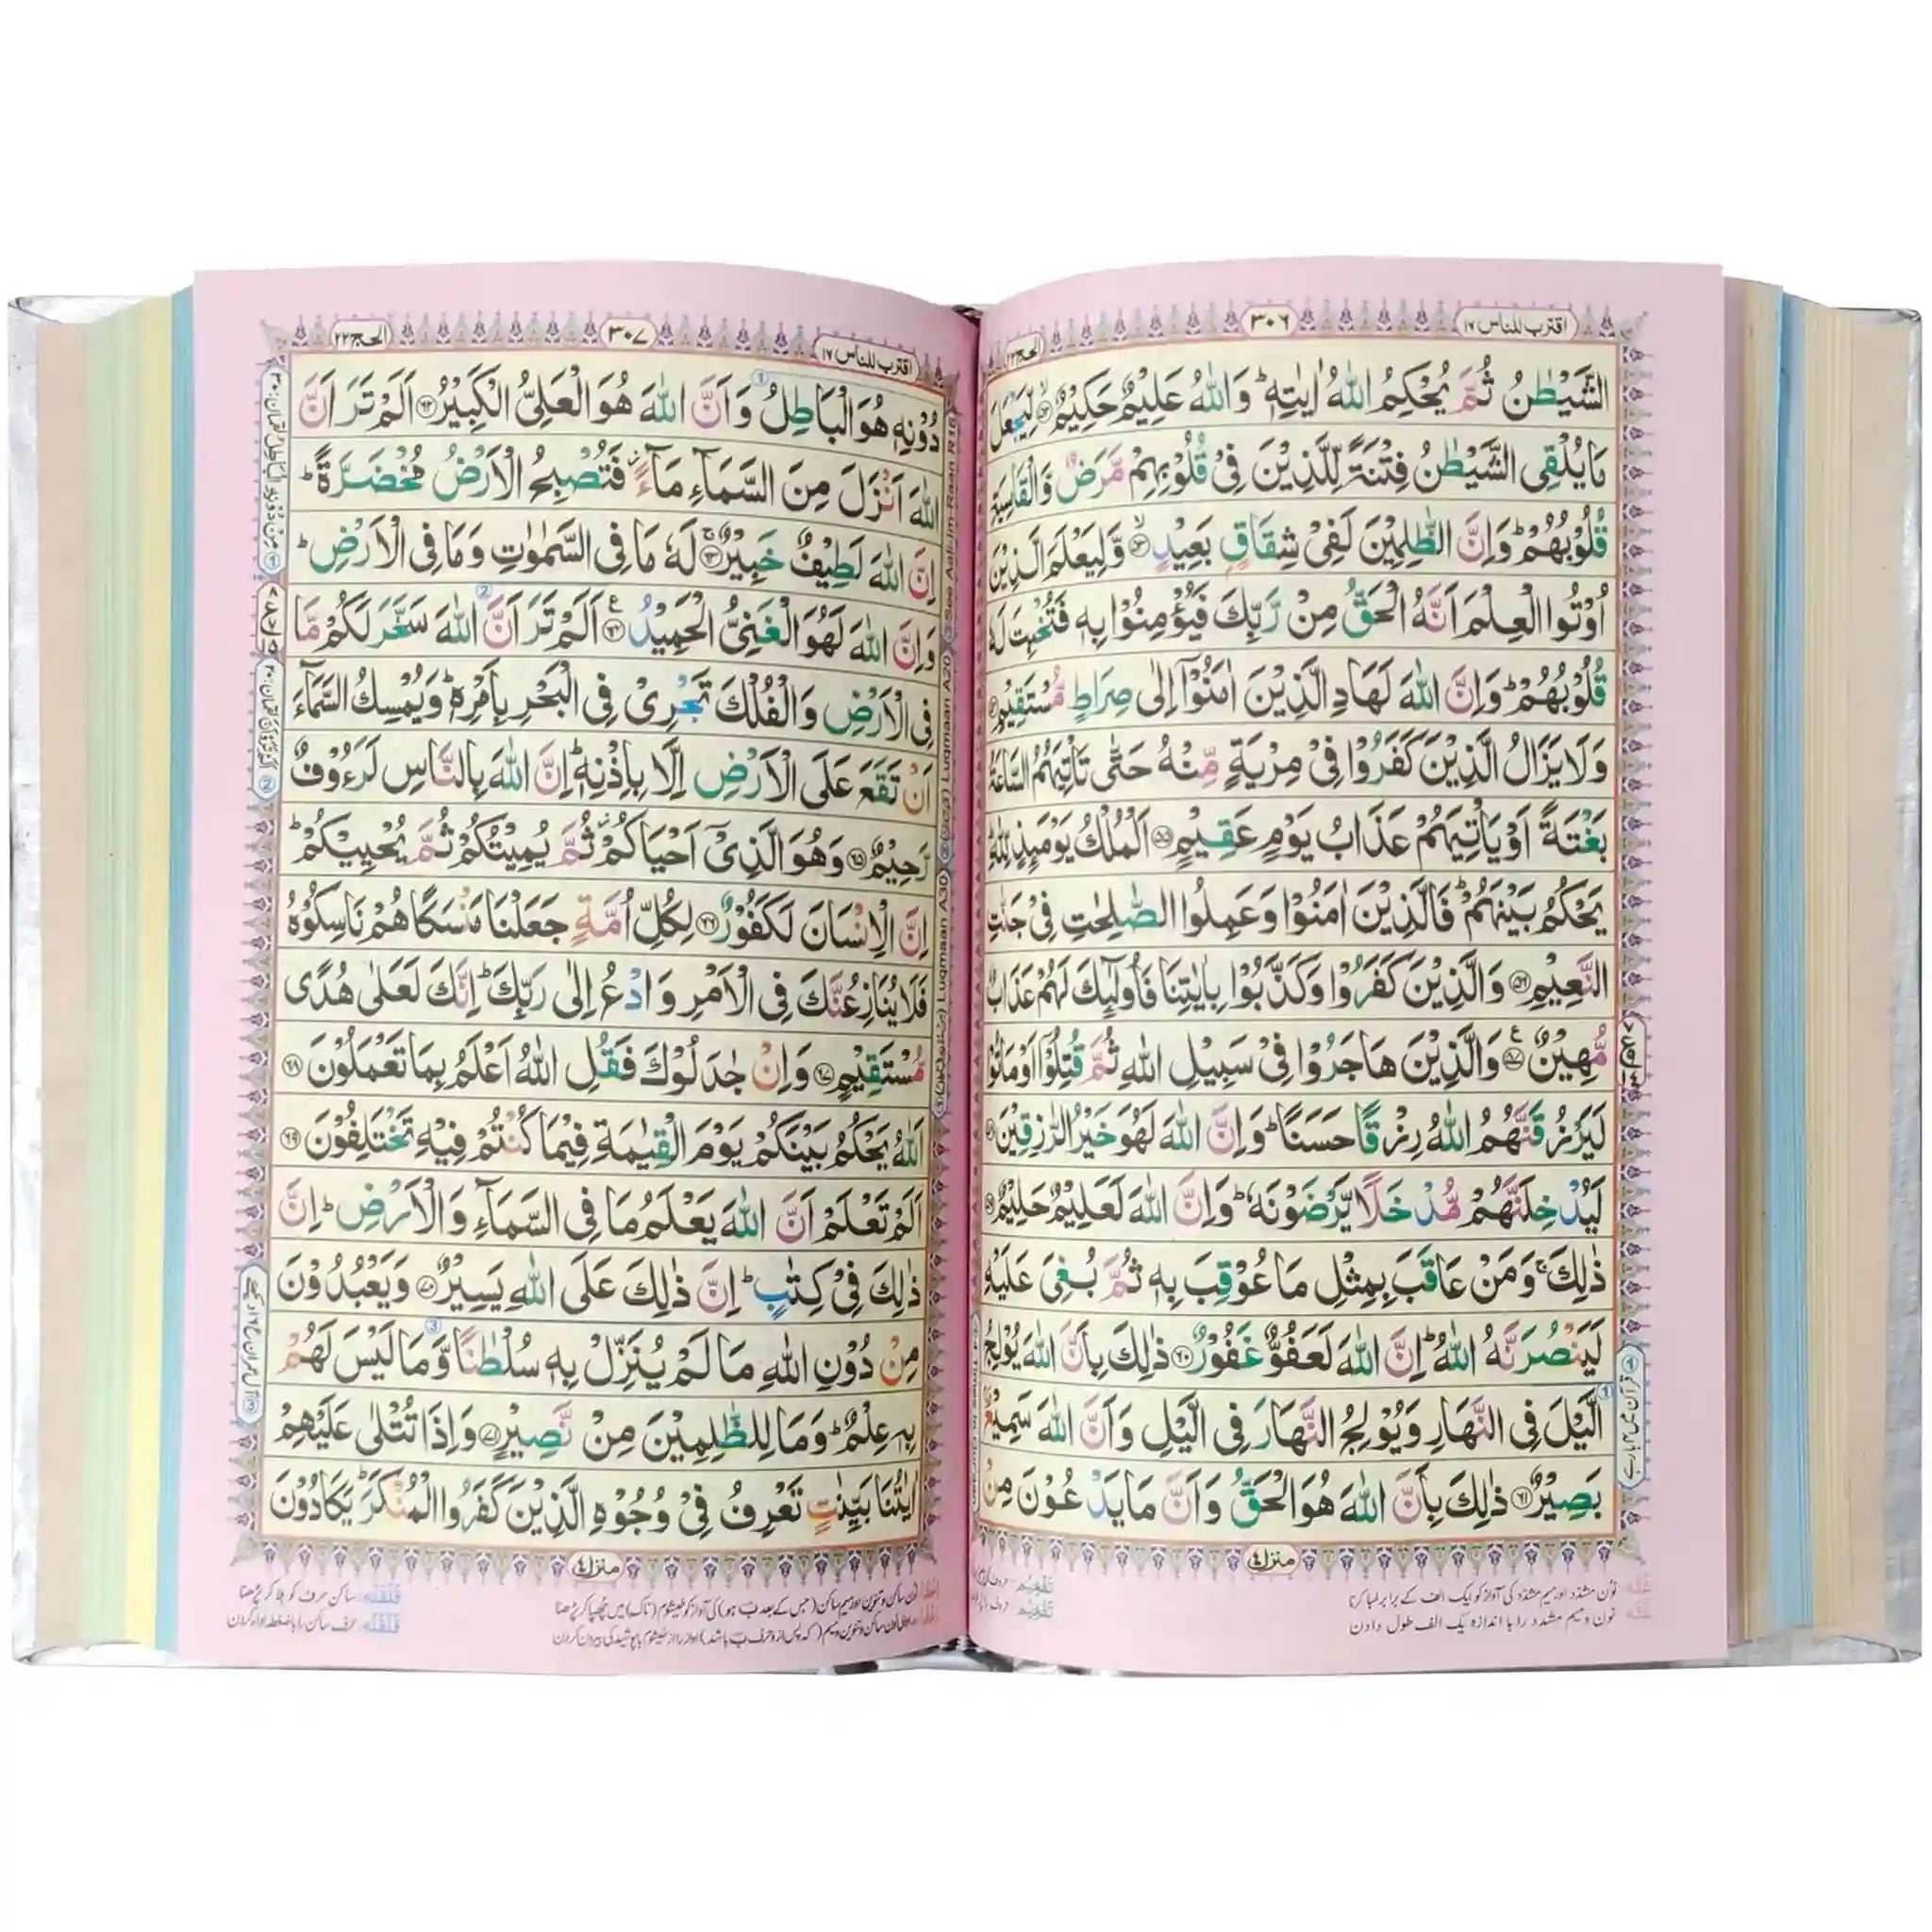 اقترب للناس ١٧
٣٠٦
الحج ٢٢
الشَّيْطٰنُ ثُمَّ يُحْكِمُ اللّٰهُ اٰيٰتِهٖ ؕ وَاللّٰهُ عَلِيْمٌ حَكِيْمٌ ۙ﴿۵۲﴾ لِّيَجْعَلَ
مَا يُلْقِى الشَّيْطٰنُ فِتْنَةً لِّلَّذِيْنَ فِىْ قُلُوْبِهِمْ مَّرَضٌ وَّالْقَاسِيَةِ
قُلُوْبُهُمْ ؕ وَاِنَّ الظّٰلِمِيْنَ لَفِىْ شِقَاقٍۭ بَعِيْدٍ ۙ﴿۵۳﴾ وَّلِيَعْلَمَ الَّذِيْنَ
اُوْتُوا الْعِلْمَ اَنَّهُ الْحَقُّ مِنْ رَّبِّكَ فَيُؤْمِنُوْا بِهٖ فَتُخْبِتَ لَهٗ
قُلُوْبُهُمْ ؕ وَاِنَّ اللّٰهَ لَهَادِ الَّذِيْنَ اٰمَنُوْۤا اِلٰى صِرَاطٍ مُّسْتَقِيْمٍ ﴿۵۴﴾
وَلَا يَزَالُ الَّذِيْنَ كَفَرُوْا فِىْ مِرْيَةٍ مِّنْهُ حَتّٰى تَاْتِيَهُمُ السَّاعَةُ
بَغْتَةً اَوْ يَاْتِيَهُمْ عَذَابُ يَوْمٍ عَقِيْمٍ ﴿۵۵﴾ اَلْمُلْكُ يَوْمَئِذٍ لِّلّٰهِ ؕ
يَحْكُمُ بَيْنَهُمْ ؕ فَالَّذِيْنَ اٰمَنُوْا وَعَمِلُوا الصّٰلِحٰتِ فِىْ جَنّٰتِ
النَّعِيْمِ ﴿۵۶﴾ وَالَّذِيْنَ كَفَرُوْا وَكَذَّبُوْا بِاٰيٰتِنَا فَاُولٰٓئِكَ لَهُمْ عَذَابٌ
مُّهِيْنٌ ﴿۵۷﴾ وَالَّذِيْنَ هَاجَرُوْا فِىْ سَبِيْلِ اللّٰهِ ثُمَّ قُتِلُوْۤا اَوْ مَاتُوْا
لَيَرْزُقَنَّهُمُ اللّٰهُ رِزْقًا حَسَنًا ؕ وَاِنَّ اللّٰهَ لَهُوَ خَيْرُ الرّٰزِقِيْنَ ﴿۵۸﴾
لَيُدْخِلَنَّهُمْ مُّدْخَلًا يَّرْضَوْنَهٗ ؕ وَاِنَّ اللّٰهَ لَعَلِيْمٌ حَلِيْمٌ ﴿۵۹﴾
ذٰلِكَ ۚ وَمَنْ عَاقَبَ بِمِثْلِ مَا عُوْقِبَ بِهٖ ثُمَّ بُغِىَ عَلَيْهِ
لَيَنْصُرَنَّهُ اللّٰهُ ؕ اِنَّ اللّٰهَ لَعَفُوٌّ غَفُوْرٌ ﴿۶۰﴾ ذٰلِكَ بِاَنَّ اللّٰهَ يُوْلِجُ
الَّيْلَ فِى النَّهَارِ وَيُوْلِجُ النَّهَارَ فِى الَّيْلِ وَاَنَّ اللّٰهَ سَمِيْعٌۢ
بَصِيْرٌ ﴿۶۱﴾ ذٰلِكَ بِاَنَّ اللّٰهَ هُوَ الْحَقُّ وَاَنَّ مَا يَدْعُوْنَ مِنْ
منزل ٤
نون مشدد اور میم مشدد کی آواز کو ایک الف کے برابر لمبا کرنا
نون و میم مشدد را با اندازہ یک الف طول دادن
اقترب للناس ١٧
٣٠٧
الحج ٢٢
دُوْنِهٖ هُوَ الْبَاطِلُ وَاَنَّ اللّٰهَ هُوَ الْعَلِىُّ الْكَبِيْرُ ﴿۶۲﴾ اَلَمْ تَرَ اَنَّ
اللّٰهَ اَنْزَلَ مِنَ السَّمَآءِ مَآءً ۫ فَتُصْبِحُ الْاَرْضُ مُخْضَرَّةً ؕ
اِنَّ اللّٰهَ لَطِيْفٌ خَبِيْرٌ ۚ﴿۶۳﴾ لَهٗ مَا فِى السَّمٰوٰتِ وَمَا فِى الْاَرْضِ ؕ
وَاِنَّ اللّٰهَ لَهُوَ الْغَنِىُّ الْحَمِيْدُ ﴿۶۴﴾ اَلَمْ تَرَ اَنَّ اللّٰهَ سَخَّرَ لَكُمْ مَّا
فِى الْاَرْضِ وَالْفُلْكَ تَجْرِىْ فِى الْبَحْرِ بِاَمْرِهٖ ؕ وَيُمْسِكُ السَّمَآءَ
اَنْ تَقَعَ عَلَى الْاَرْضِ اِلَّا بِاِذْنِهٖ ؕ اِنَّ اللّٰهَ بِالنَّاسِ لَرَءُوْفٌ
رَّحِيْمٌ ﴿۶۵﴾ وَهُوَ الَّذِىْۤ اَحْيَاكُمْ ۫ ثُمَّ يُمِيْتُكُمْ ثُمَّ يُحْيِيْكُمْ ؕ
اِنَّ الْاِنْسَانَ لَكَفُوْرٌ ﴿۶۶﴾ لِكُلِّ اُمَّةٍ جَعَلْنَا مَنْسَكًا هُمْ نَاسِكُوْهُ
فَلَا يُنَازِعُنَّكَ فِى الْاَمْرِ وَادْعُ اِلٰى رَبِّكَ ؕ اِنَّكَ لَعَلٰى هُدًى
مُّسْتَقِيْمٍ ﴿۶۷﴾ وَاِنْ جٰدَلُوْكَ فَقُلِ اللّٰهُ اَعْلَمُ بِمَا تَعْمَلُوْنَ ﴿۶۸﴾
اَللّٰهُ يَحْكُمُ بَيْنَكُمْ يَوْمَ الْقِيٰمَةِ فِيْمَا كُنْتُمْ فِيْهِ تَخْتَلِفُوْنَ ﴿۶۹﴾
اَلَمْ تَعْلَمْ اَنَّ اللّٰهَ يَعْلَمُ مَا فِى السَّمَآءِ وَالْاَرْضِ ؕ اِنَّ
ذٰلِكَ فِىْ كِتٰبٍ ؕ اِنَّ ذٰلِكَ عَلَى اللّٰهِ يَسِيْرٌ ﴿۷۰﴾ وَيَعْبُدُوْنَ
مِنْ دُوْنِ اللّٰهِ مَا لَمْ يُنَزِّلْ بِهٖ سُلْطٰنًا وَّمَا لَيْسَ لَهُمْ
بِهٖ عِلْمٌ ؕ وَمَا لِلظّٰلِمِيْنَ مِنْ نَّصِيْرٍ ﴿۷۱﴾ وَاِذَا تُتْلٰى عَلَيْهِمْ
اٰيٰتُنَا بَيِّنٰتٍ تَعْرِفُ فِىْ وُجُوْهِ الَّذِيْنَ كَفَرُوا الْمُنْكَرَ ؕ يَكَادُوْنَ
منزل ٤
قلقلہ: ساکن حرف کو ہلا کر پڑھنا
See Aali-Im-Raan R16
Luqmaan A20
Luqmaan A30